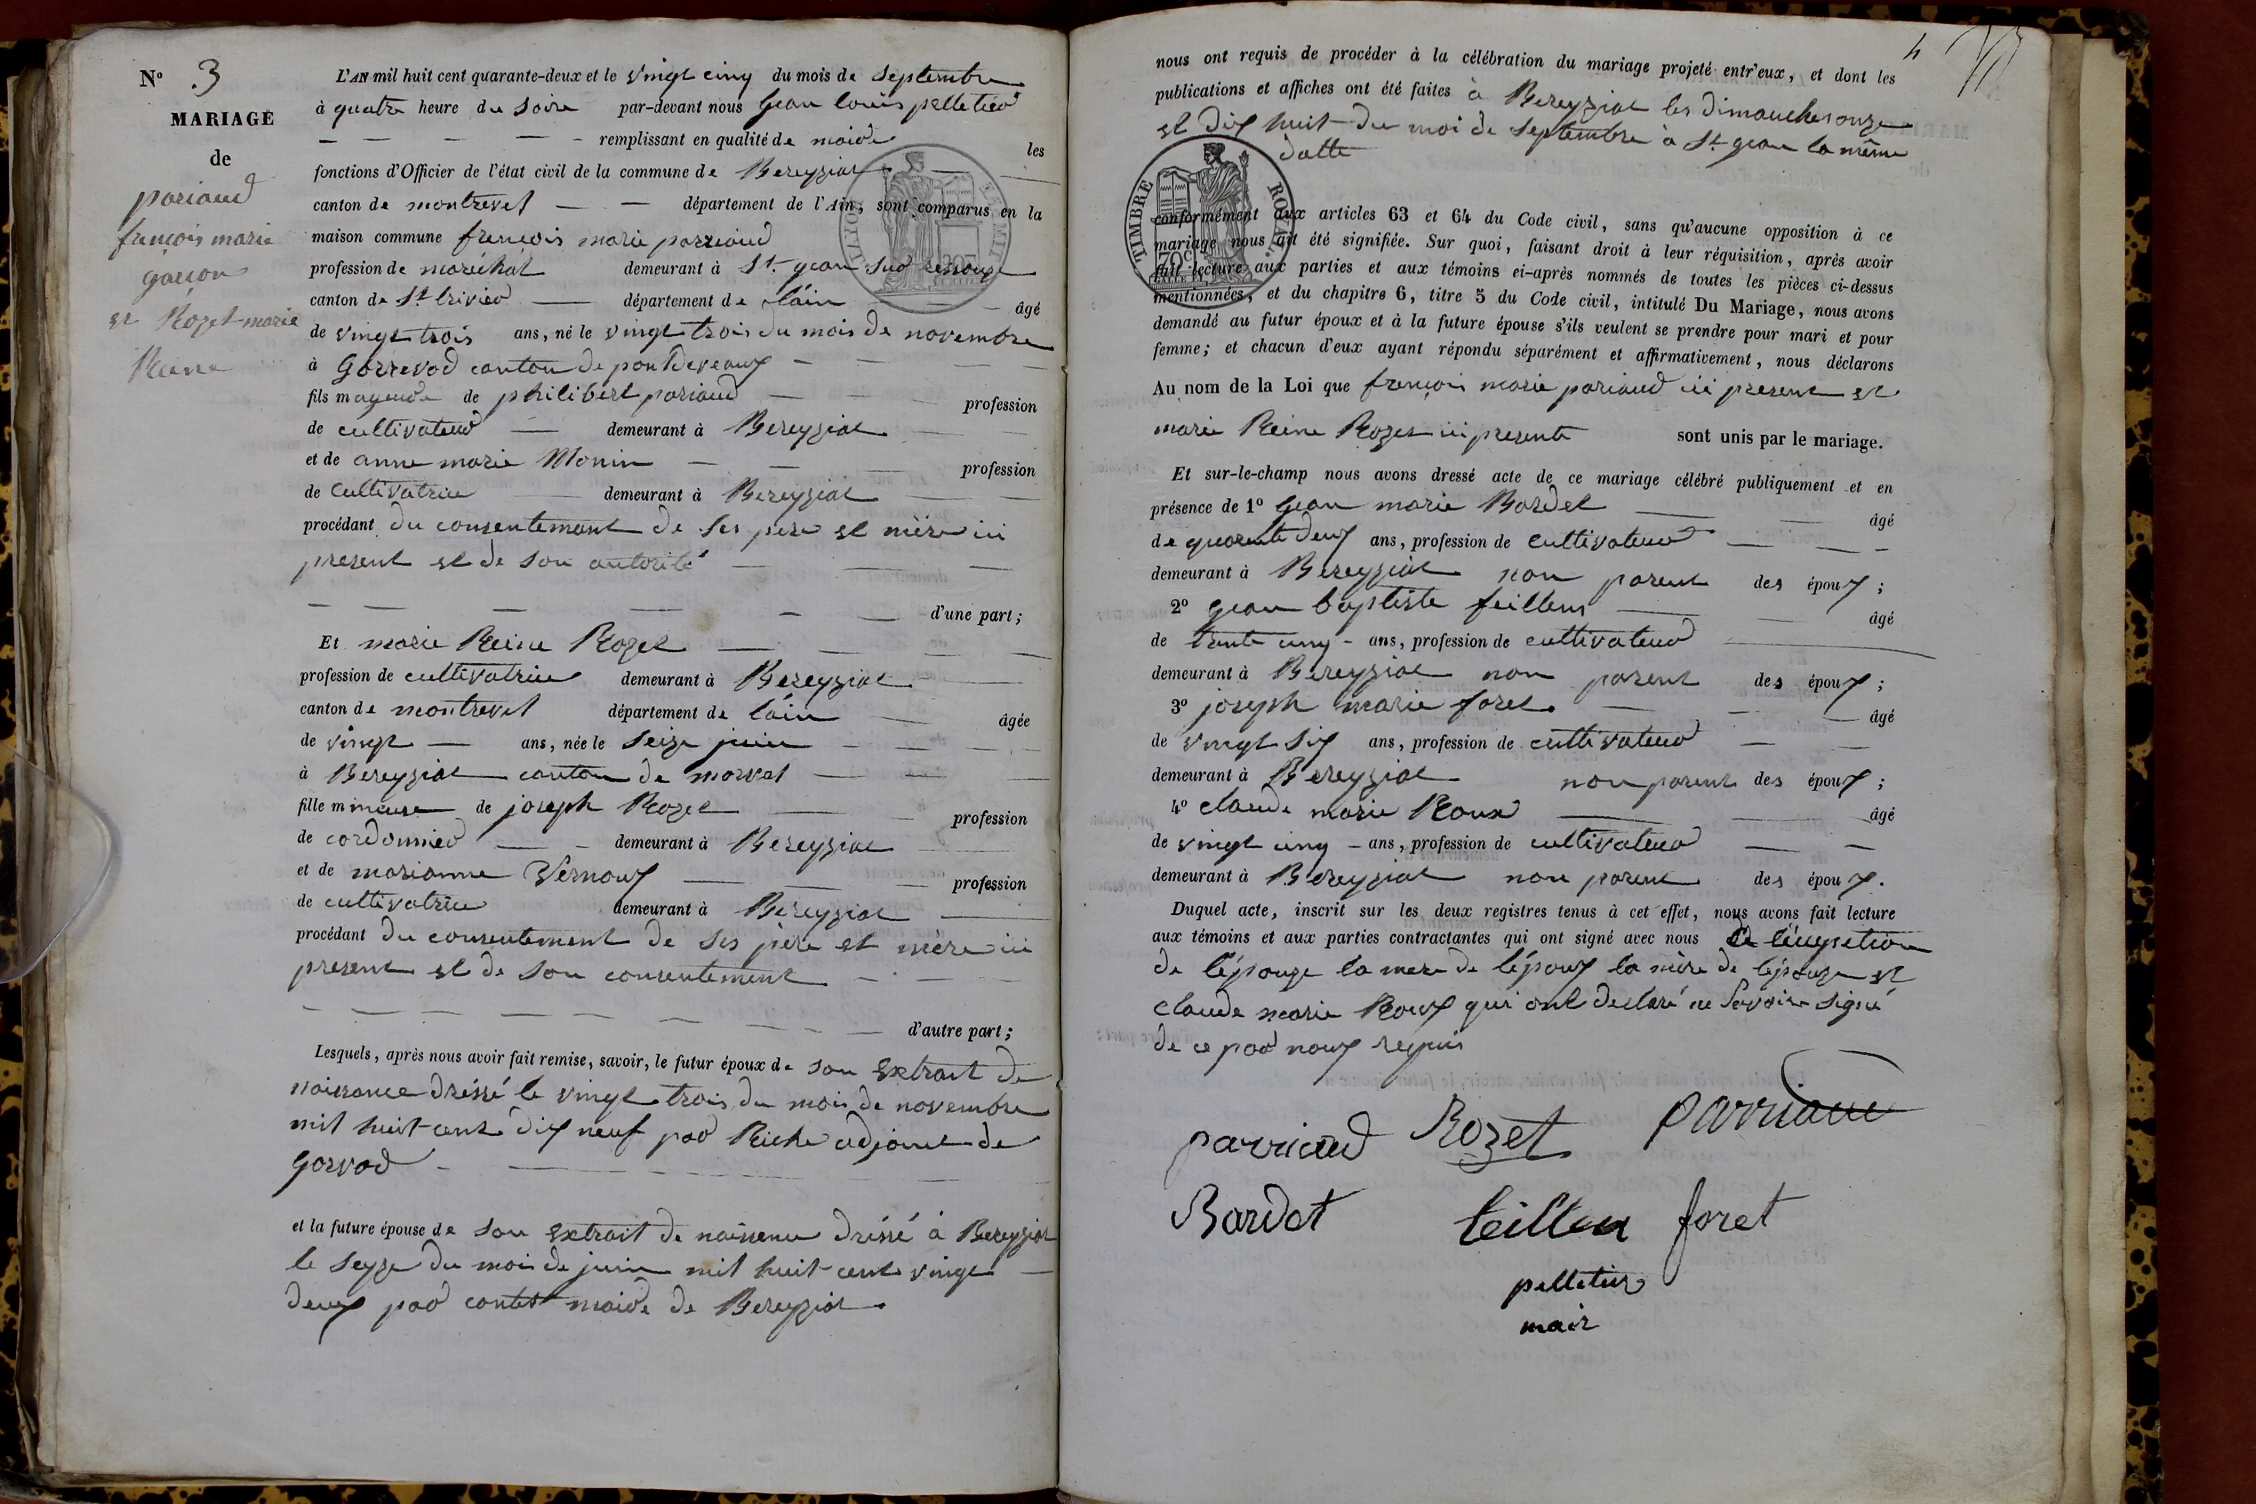 N° 3
MARIAGE
de
pariaud
françois marie
garçon
et Rozet marie
Reine
L'AN mil huit cent quarante-deux et le vingt cinq du mois de septembre
à quatre heure du soire par-devant nous Gean louis pelletier
remplissant en qualité de maire les
fonctions d'Officier de l'état civil de la commune de Bereyziat
canton de montrevel département de l'Ain, sont comparus en la
maison commune françois marie parriaud
profession de maréchal demeurant à St. gean sur resouze
canton de St trivier département de láin âgé
de vingt trois ans, né le vingt trois du mois de novembre
à Gorrevod canton de pont Deveaux
fils mageude de philibert pariaud profession
de cultivateur demeurant à Bereyziat
et de anne marie Monin profession
de cultivatrice demeurant à Bereyziat
procédant du consentemant de ses pere et mère ici
present et de son autorité
d'une part;
Et marie Reine Rozet
profession de cultivatrice demeurant à Bereyziat
canton de montrevel département de láin âgée
de vingt ans, née le seize juin
à Bereyziat canton de morvel
fille mineure de joseph Rozet profession
de cordonnier demeurant à Bereyziat
et de marianne Vernoux profession
de cultivatrice demeurant à Bereyziat
procédant du consentement de ses père et mère ici
present et de son consentement
d'autre part;
Lesquels, après nous avoir fait remise, savoir, le futur époux de son extrait de
naissance dréssé le vingt trois du mois de novembre
mil huit cent dix neuf par Riche adjoint de
gorvod
et la future épouse de son extrait de naissence dréssé à Bereyziat
le seyze du mois de juin mil huit cent vingt
deux par contet maire de Bereyziat.
4
nous ont requis de procéder à la célébration du mariage projeté entr'eux, et dont les
publications et affiches ont été faites à Bereyziat les dimanches onze
et dix huit du moi de septembre à St gean la même
datte
TIMBRE ROYAL
70c
conformément aux articles 63 et 64 du Code civil, sans qu'aucune opposition à ce
mariage nous ait été signifiée. Sur quoi, faisant droit à leur réquisition, après avoir
fait lecture aux parties et aux témoins ci-après nommés de toutes les pièces ci-dessus
mentionnées, et du chapitre 6, titre 5 du Code civil, intitulé Du Mariage, nous avons
demandé au futur époux et à la future épouse s'ils veulent se prendre pour mari et pour
femme; et chacun d'eux ayant répondu séparément et affirmativement, nous déclarons
Au nom de la Loi que françois marie pariaud ici present et
marie Reine Rozet ici presente sont unis par le mariage.
Et sur-le-champ nous avons dressé acte de ce mariage célébré publiquement et en
présence de 1° gean marie Bardet âgé
de quarente deux ans, profession de cultivateur
demeurant à Bereyziat non parent des époux;
2° gean baptiste feillens âgé
de trente cinq ans, profession de cultivateur
demeurant à Bereyziat non parent des époux;
3° joseph marie foret. âgé
de vingt six ans, profession de cultivateur
demeurant à Bereyziat non parent des époux;
4° claude marie Roux âgé
de vingt cinq ans, profession de cultivateur
demeurant à Bereyziat non parent des époux.
Duquel acte, inscrit sur les deux registres tenus à cet effet, nous avons fait lecture
aux témoins et aux parties contractantes qui ont signé avec nous
de lépouze la mere de lépoux la mère de lépouze et
claude marie Roux qui ont declaré ne savoire signé
de ce par noux requis
parriaud Rozet parriaud
Bardet feillen foret
pelletier
mair